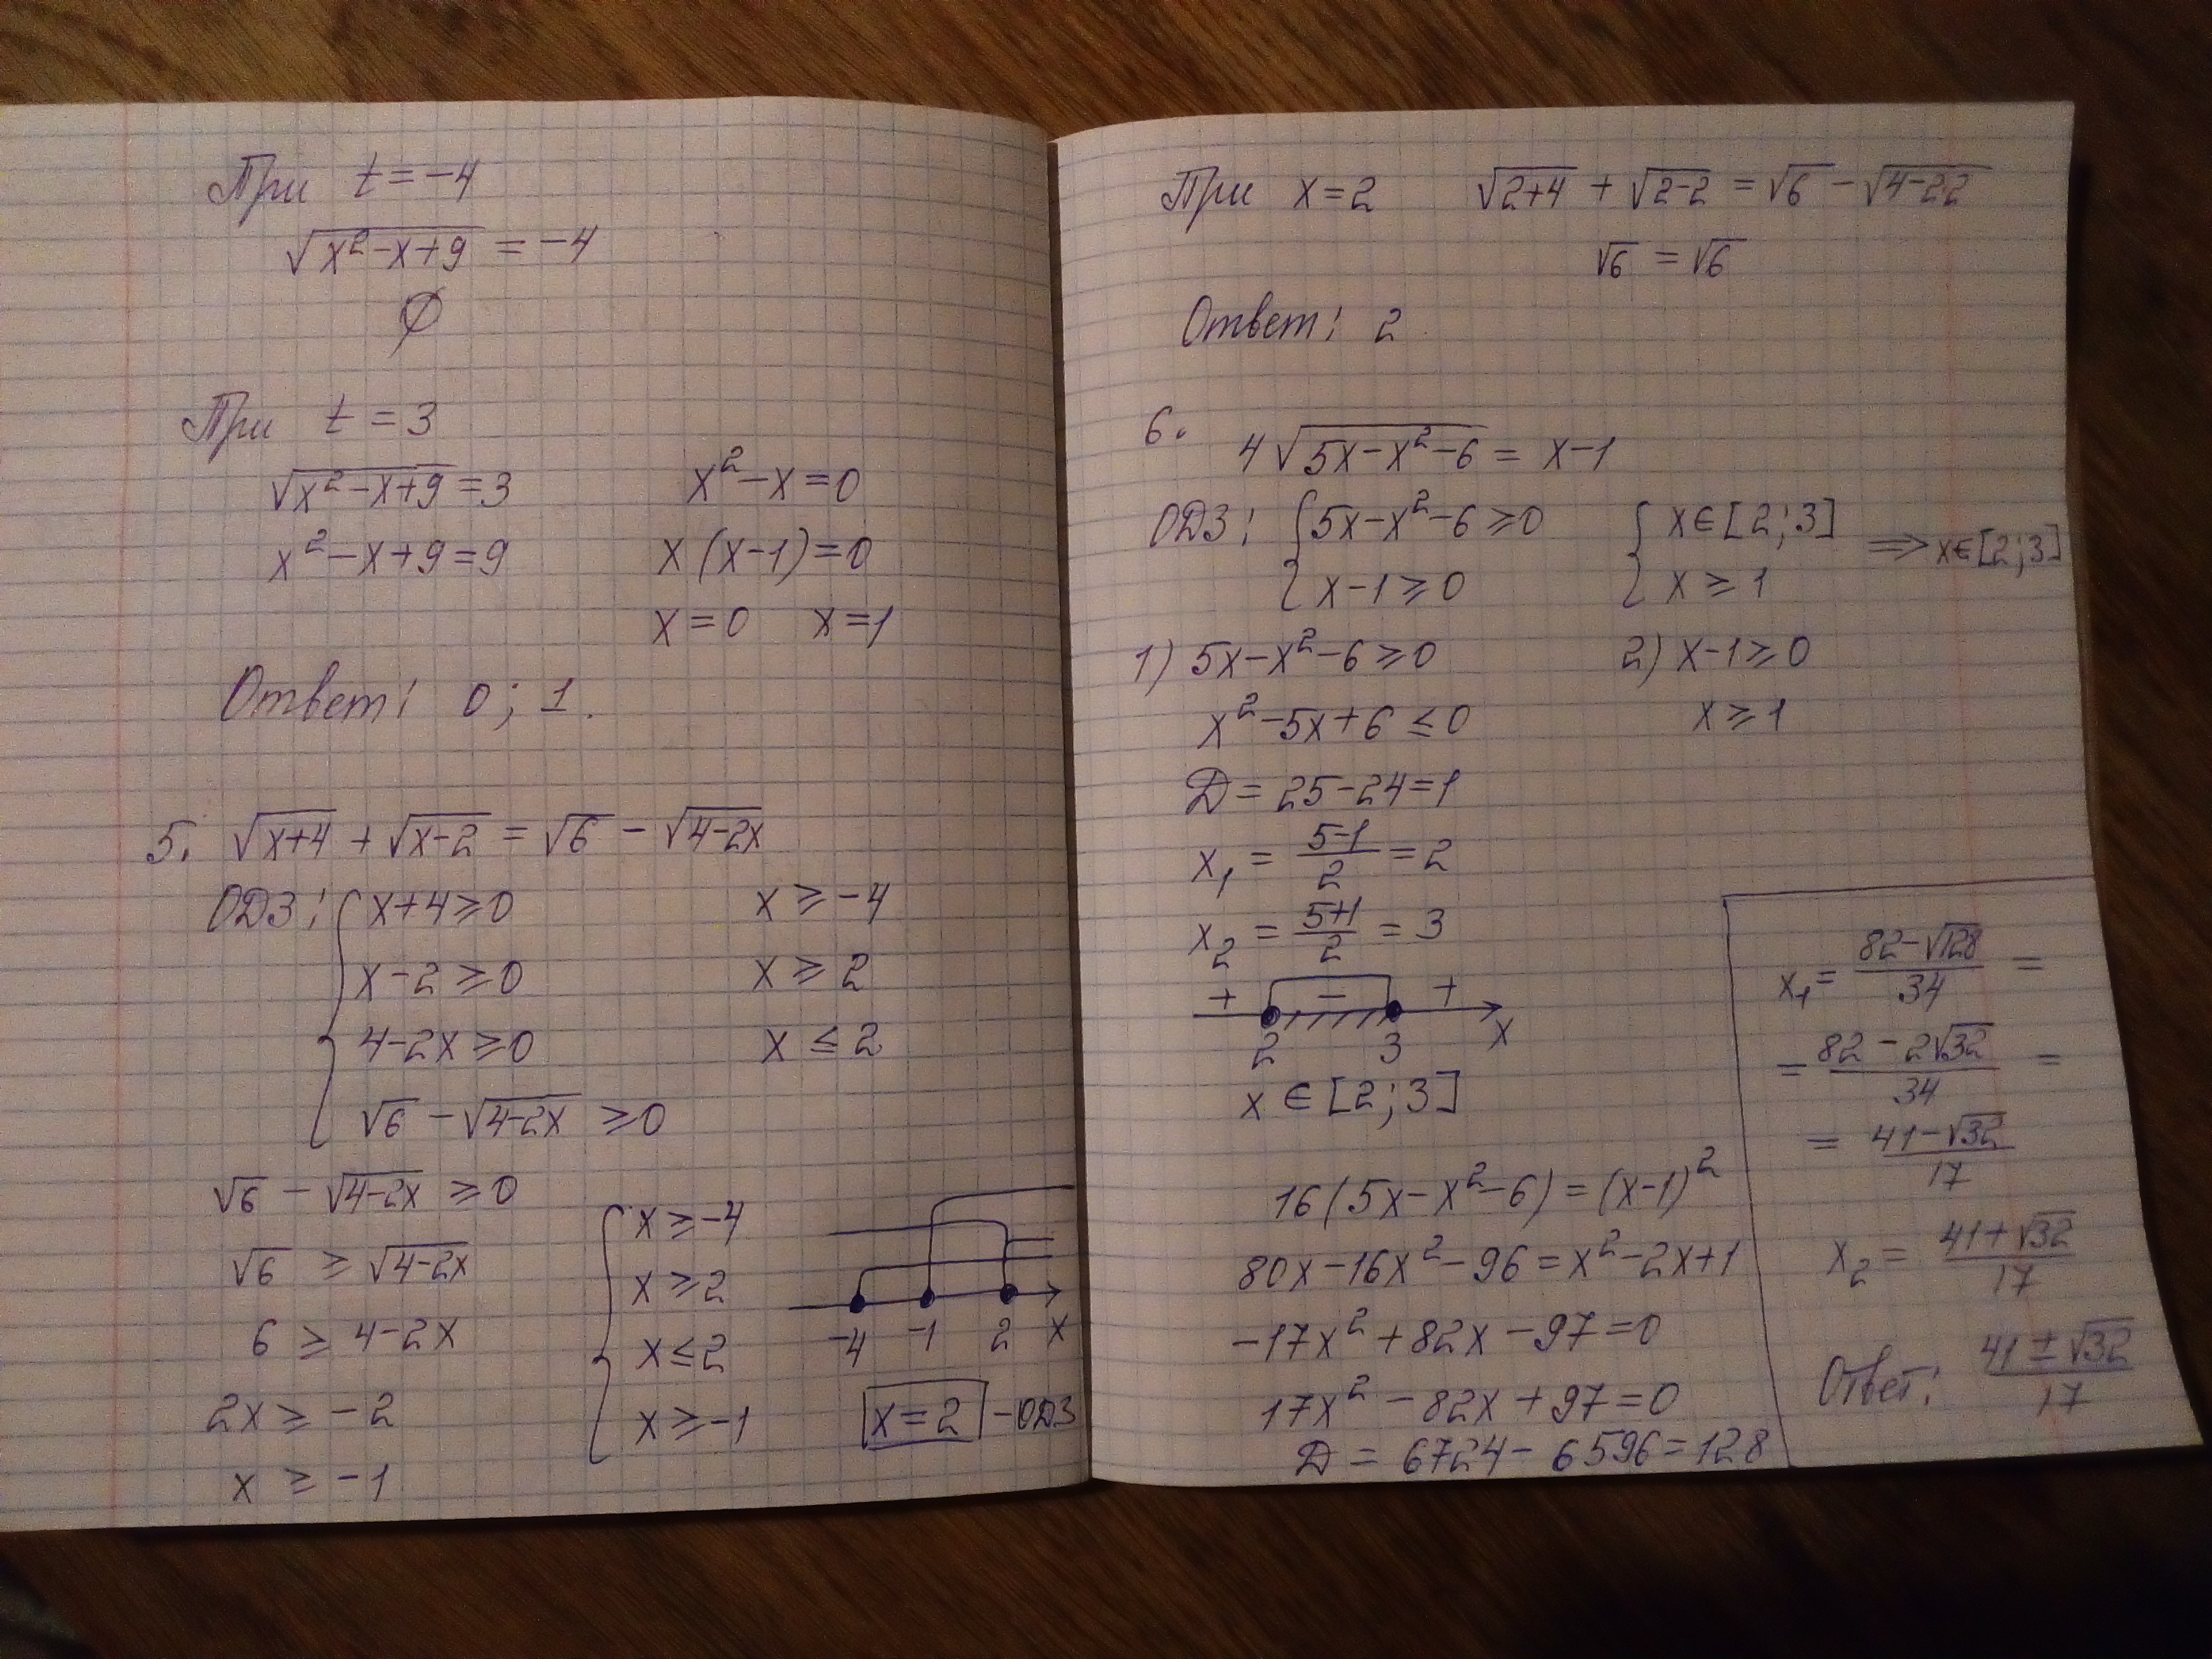 При t = -4
√(x² - x + 9) = -4
∅
При t = 3
√(x² - x + 9) = 3
x² - x + 9 = 9
x² - x = 0
x (x - 1) = 0
x = 0 x = 1
Ответ: 0; 1.
5. √(x+4) + √(x-2) = √6 - √(4-2x)
ОДЗ: { x+4 ≥ 0
x - 2 ≥ 0
4 - 2x ≥ 0
√6 - √(4-2x) ≥ 0
x ≥ -4
x ≥ 2
x ≤ 2
√6 - √(4-2x) ≥ 0
√6 ≥ √(4-2x)
6 ≥ 4 - 2x
2x ≥ -2
x ≥ -1
{ x ≥ -4
x ≥ 2
x ≤ 2
x ≥ -1
-4 -1 2 x
x = 2 - ОДЗ
При x = 2 √(2+4) + √(2-2) = √6 - √(4-2·2)
√6 = √6
Ответ: 2.
6. 4√(5x - x² - 6) = x - 1
ОДЗ: { 5x - x² - 6 ≥ 0
x - 1 ≥ 0
{ x ∈ [2; 3]
x ≥ 1
⇒ x ∈ [2; 3]
1) 5x - x² - 6 ≥ 0
x² - 5x + 6 ≤ 0
D = 25 - 24 = 1
x₁ = (5-1)/2 = 2
x₂ = (5+1)/2 = 3
+ - +
2 3 x
x ∈ [2; 3]
2) x - 1 ≥ 0
x ≥ 1
16(5x - x² - 6) = (x - 1)²
80x - 16x² - 96 = x² - 2x + 1
-17x² + 82x - 97 = 0
17x² - 82x + 97 = 0
D = 6724 - 6596 = 128
x₁ = (82 - √128)/34 =
= (82 - 2√32)/34 =
= (41 - √32)/17
x₂ = (41 + √32)/17
Ответ: (41 ± √32)/17